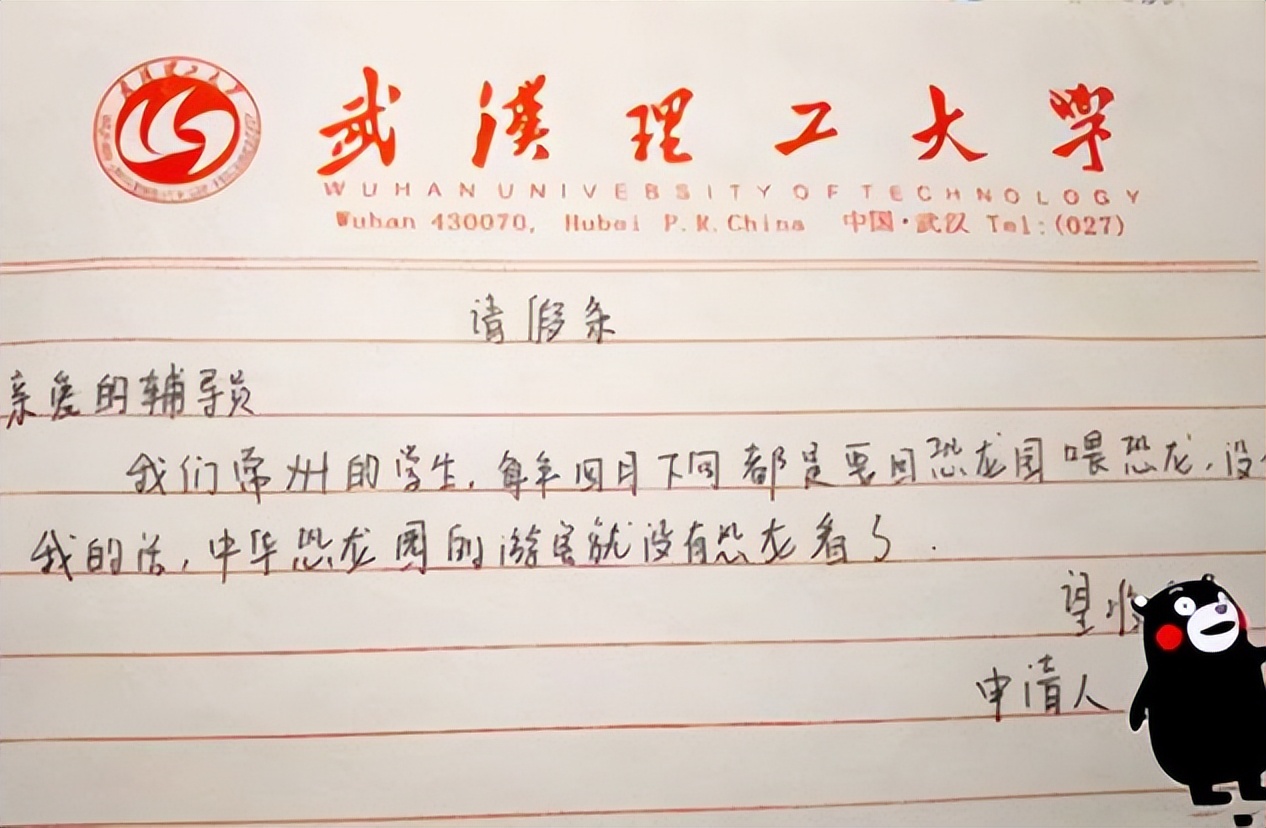 武汉理工大学
WUHAN UNIVERSITY OF TECHNOLOGY
Wuhan 430070, Hubei P.R.China 中国·武汉 Tel:(027)
请假条
亲爱的辅导员
我们常州的学生,每年四月下旬都是要回恐龙园喂恐龙,没
我的话,中华恐龙园的游客就没有恐龙看了.
望
申请人